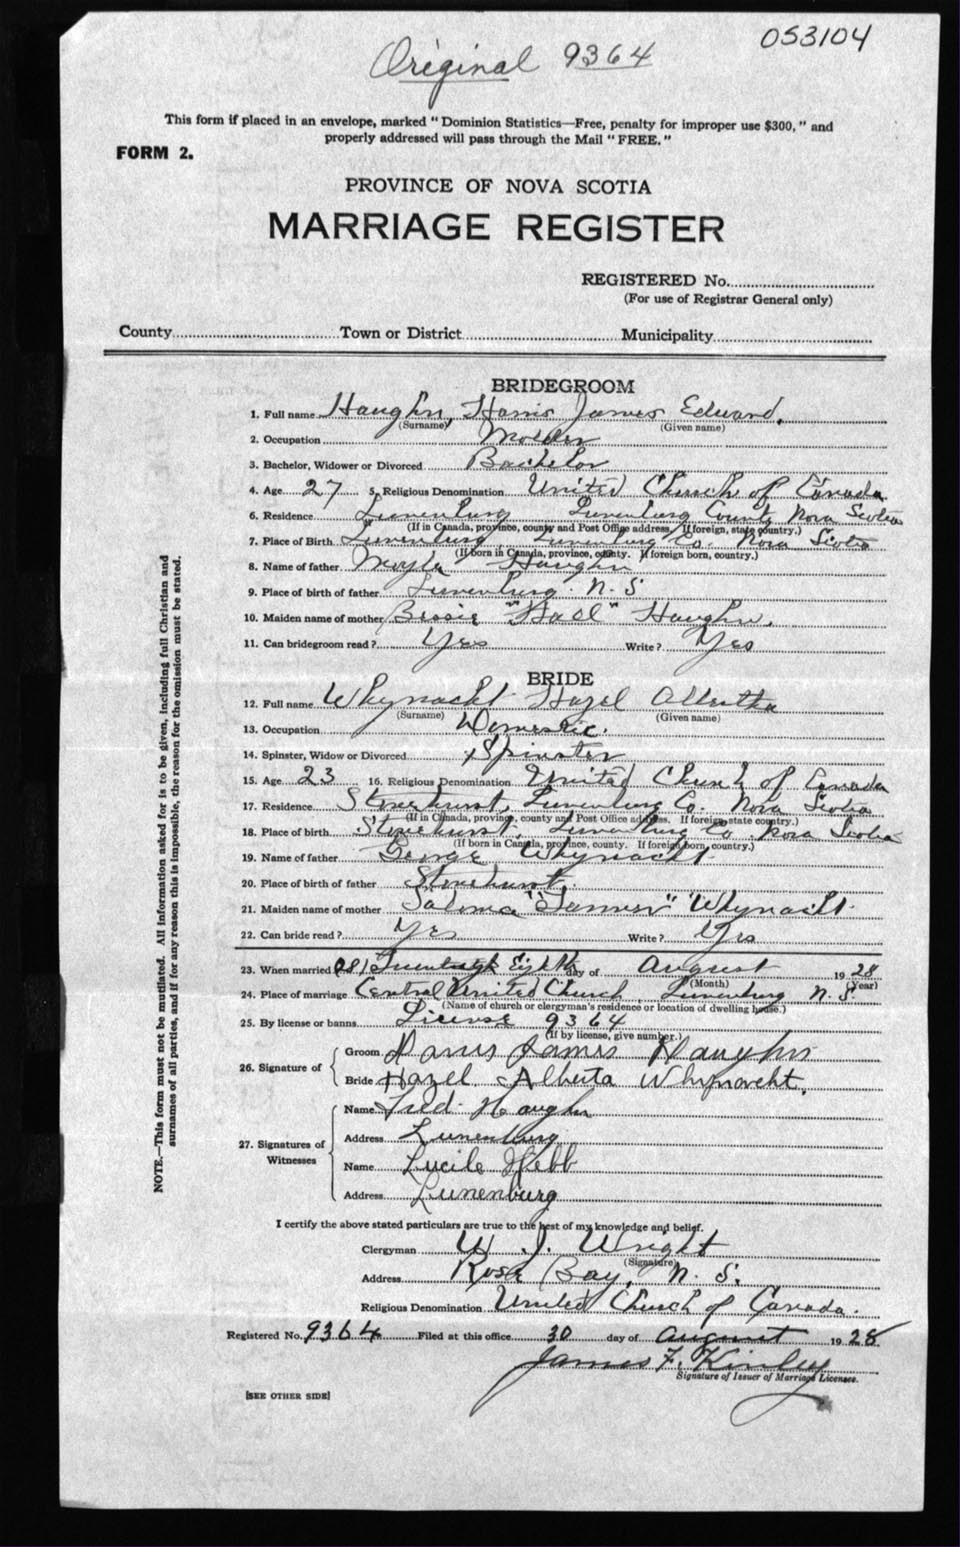 Original 9364
053104
This form if placed in an envelope, marked "Dominion Statistics—Free, penalty for improper use $300," and
properly addressed will pass through the Mail "FREE."
FORM 2.
PROVINCE OF NOVA SCOTIA
MARRIAGE REGISTER
REGISTERED No.
(For use of Registrar General only)
County Town or District Municipality
BRIDEGROOM
1. Full name Haughn, Harris James Edward,
(Surname) (Given name)
2. Occupation Molder
3. Bachelor, Widower or Divorced Bachelor
4. Age 27 5. Religious Denomination United Church of Canada
6. Residence Lunenburg Lunenburg County Nova Scotia
(If in Canada, province, county and Post Office address. If foreign, state country.)
7. Place of Birth Lunenburg Lunenburg Co. Nova Scotia
(If born in Canada, province, county. If foreign born, country.)
8. Name of father Moyle Haughn
9. Place of birth of father Lunenburg. N. S
10. Maiden name of mother Bessie "Hall" Haughn.
11. Can bridegroom read? Yes Write? Yes
BRIDE
12. Full name Whynacht Hazel Albertha
(Surname) (Given name)
13. Occupation Domestic.
14. Spinster, Widow or Divorced Spinster
15. Age 23 16. Religious Denomination United Church of Canada
17. Residence Stonehurst, Lunenburg Co. Nova Scotia
(If in Canada, province, county and Post Office address. If foreign state country.)
18. Place of birth Stonehurst, Lunenburg Co Nova Scotia
(If born in Canada, province, county. If foreign born, country.)
19. Name of father George Whynacht
20. Place of birth of father Stonehurst.
21. Maiden name of mother Saloma "Tanner" Whynacht
22. Can bride read? Yes Write? Yes
23. When married (28) Twenty Eighth day of August 19 28
(Month) (Year)
24. Place of marriage Central United Church Lunenburg N. S.
(Name of church or clergyman's residence or location of dwelling house.)
25. By license or banns License 9364
(If by license, give number.)
26. Signature of
Groom Harris James Haughn
Bride Hazel Alberta Whynacht.
27. Signatures of
Witnesses
Name Fred Haughn
Address Lunenburg
Name Lucile Hebb
Address Lunenburg
I certify the above stated particulars are true to the best of my knowledge and belief.
Clergyman W. J. Wright
(Signature)
Address Rose Bay, N. S.
Religious Denomination United Church of Canada.
Registered No. 9364 Filed at this office 30 day of August 19 28
James F. Kinley
Signature of Issuer of Marriage Licenses.
[SEE OTHER SIDE]
NOTE.—This form must not be mutilated. All information asked for is to be given, including full Christian and
surnames of all parties, and if for any reason this is impossible, the reason for the omission must be stated.